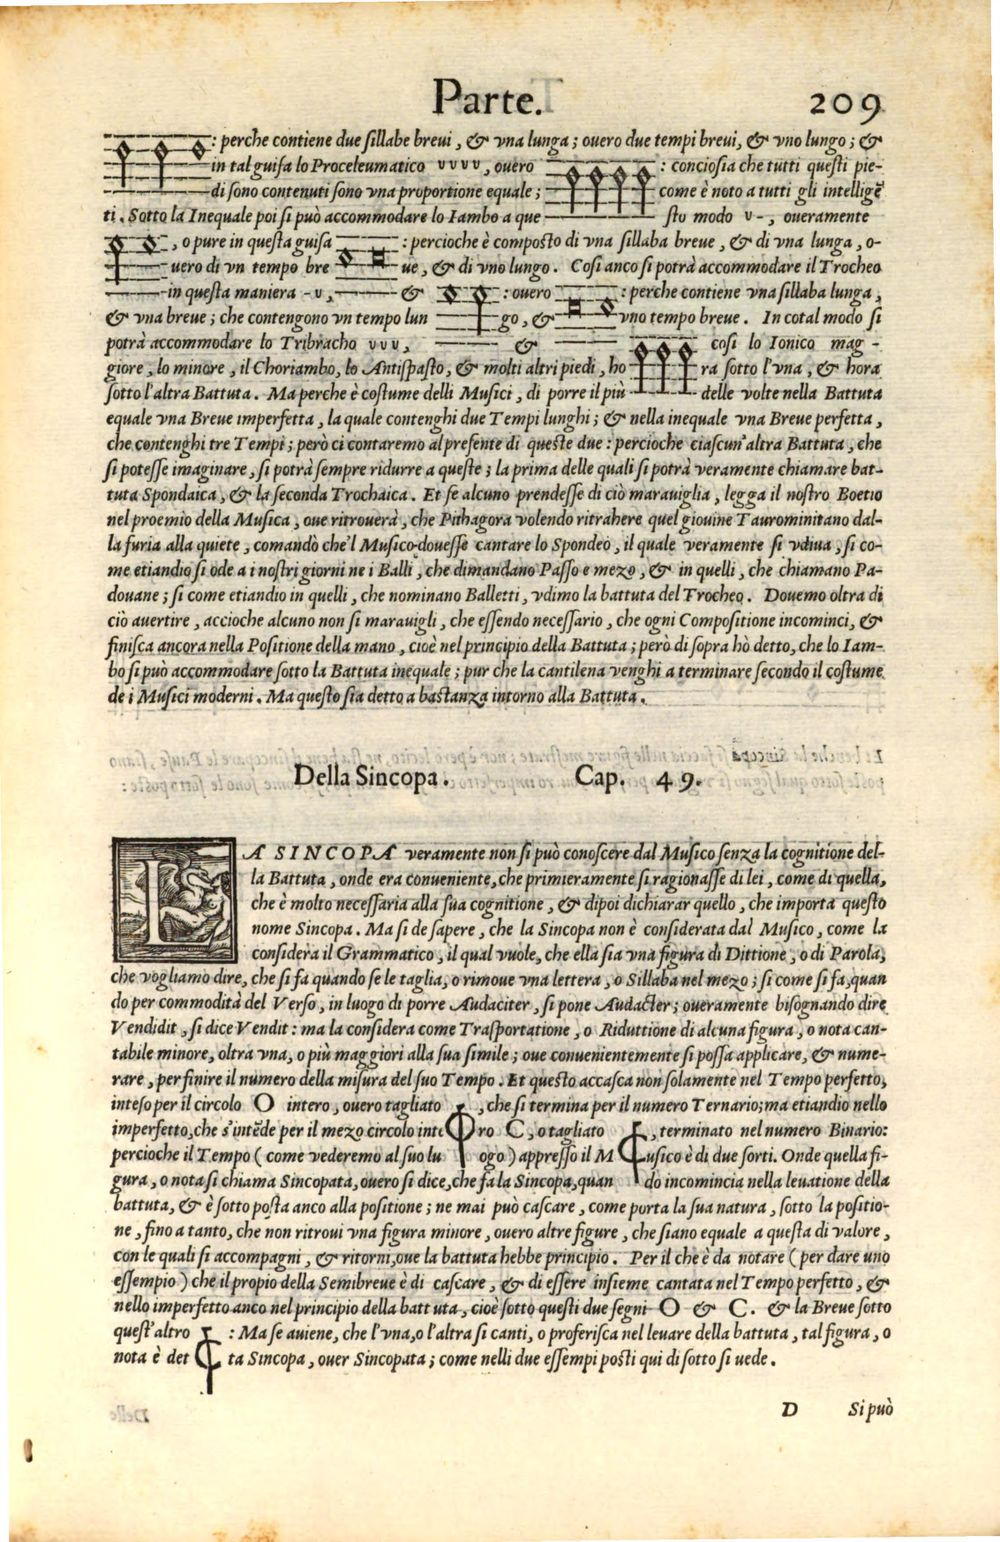 Parte. 209
: perche contiene due ſillabe brevi, & vna lunga; overo due tempi brevi, & vno lungo; &
in tal guiſa lo Proceleumatico vvvv, overo : concioſia che tutti queſti pie-
di ſono contenuti ſono vna proportione equale; come è noto a tutti gli intelligē
ti. Sotto la Inequale poi ſi può accommodare lo Iambo a que ſto modo v-, oueramente
, o pure in queſta guiſa : percioche è compoſto di vna ſillaba breue, & di vna lunga, o-
uero di vn tempo bre ue, & di vno lungo. Coſi anco ſi potrà accommodare il Trocheo
in queſta maniera -v, & : ouero : perche contiene vna ſillaba lunga,
& vna breue; che contengono vn tempo lun go, & vno tempo breve. In cotal modo ſi
potrà accommodare lo Tribracho vvv, & coſi lo Ionico mag-
giore, lo minore, il Choriambo, lo Antiſpaſto, & molti altri piedi, ho ra ſotto l'vna, & hora
ſotto l'altra Battuta. Ma perche è coſtume delli Muſici, di porre il più delle volte nella Battuta
equale vna Breue imperfetta, la quale contenghi due Tempi lunghi; & nella inequale vna Breue perfetta,
che contenghi tre Tempi; però ci contaremo al preſente di queſte due: percioche ciaſcun'altra Battuta, che
ſi poteſſe imaginare, ſi potrà ſempre ridurre a queſte; la prima delle quali ſi potrà veramente chiamare bat-
tuta Spondaica, & la ſeconda Trochaica. Et ſe alcuno prendeſſe di ciò marauiglia, legga il noſtro Boetio
nel proemio della Muſica, oue ritrouerà, che Pithagora volendo ritrahere quel giouine Taurominitano dal-
la furia alla quiete, comandò che'l Muſico doueſſe cantare lo Spondeo, il quale veramente ſi vdiua, ſi co-
me etiandio ſi ode a i noſtri giorni ne i Balli, che dimandano Paſſo e mezo, & in quelli, che chiamano Pa-
douane; ſi come etiandio in quelli, che nominano Balletti, vdimo la battuta del Trocheo. Douemo oltra di
ciò auertire, accioche alcuno non ſi marauigli, che eſſendo neceſſario, che ogni Compoſitione incominci, &
finiſca ancora nella Poſitione della mano, cioè nel principio della Battuta; però di ſopra hò detto, che lo Iam-
bo ſi può accommodare ſotto la Battuta inequale; pur che la cantilena venghi a terminare ſecondo il coſtume
de i Muſici moderni. Ma queſto ſia detto a baſtanza intorno alla Battuta.
Della Sincopa. Cap. 49.
LA SINCOPA veramente non ſi può conoſcere dal Muſico ſenza la cognitione del-
la Battuta, onde era conueniente, che primieramente ſi ragionaſſe di lei, come di quella,
che è molto neceſſaria alla ſua cognitione, & dipoi dichiarar quello, che importa queſto
nome Sincopa. Ma ſi de ſapere, che la Sincopa non è conſiderata dal Muſico, come la
conſidera il Grammatico, il qual vuole, che ella ſia vna figura di Dittione, o di Parola,
che vogliamo dire, che ſi fa quando ſe le taglia, o rimoue vna lettera, o Sillaba nel mezo; ſi come ſi fa, quan
do per commodità del Verſo, in luogo di porre Audaciter, ſi pone Audacter; oueramente biſognando dire
Vendidit, ſi dice Vendit: ma la conſidera come Traſportatione, o Riduttione di alcuna figura, o nota can-
tabile minore, oltra vna, o più maggiori alla ſua ſimile; oue conuenientemente ſi poſſa applicare, & nume-
rare, per finire il numero della miſura del ſuo Tempo. Et queſto accaſca non ſolamente nel Tempo perfetto,
inteſo per il circolo O intero, ouero tagliato , che ſi termina per il numero Ternario; ma etiandio nello
imperfetto, che s'intēde per il mezo circolo inte ro C, o tagliato , terminato nel numero Binario:
percioche il Tempo (come vederemo al ſuo lu ogo) appreſſo il M uſico è di due ſorti. Onde quella fi-
gura, o nota ſi chiama Sincopata, ouero ſi dice, che fa la Sincopa, quan do incomincia nella leuatione della
battuta, & è ſotto poſta anco alla poſitione; ne mai può caſcare, come porta la ſua natura, ſotto la poſitio-
ne, fino a tanto, che non ritroui vna figura minore, ouero altre figure, che ſiano equale a queſta di valore,
con le quali ſi accompagni, & ritorni, oue la battuta hebbe principio. Per il che è da notare (per dare uno
eſſempio) che il propio della Semibreue è di caſcare, & di eſſere inſieme cantata nel Tempo perfetto, &
nello imperfetto anco nel principio della batt uta, cioè ſotto queſti due ſegni O & C. & la Breue ſotto
queſt'altro : Ma ſe auiene, che l'vna, o l'altra ſi canti, o proferiſca nel leuare della battuta, tal figura, o
nota è det ta Sincopa, ouer Sincopata; come nelli due eſſempi poſti qui di ſotto ſi uede.
D Si può